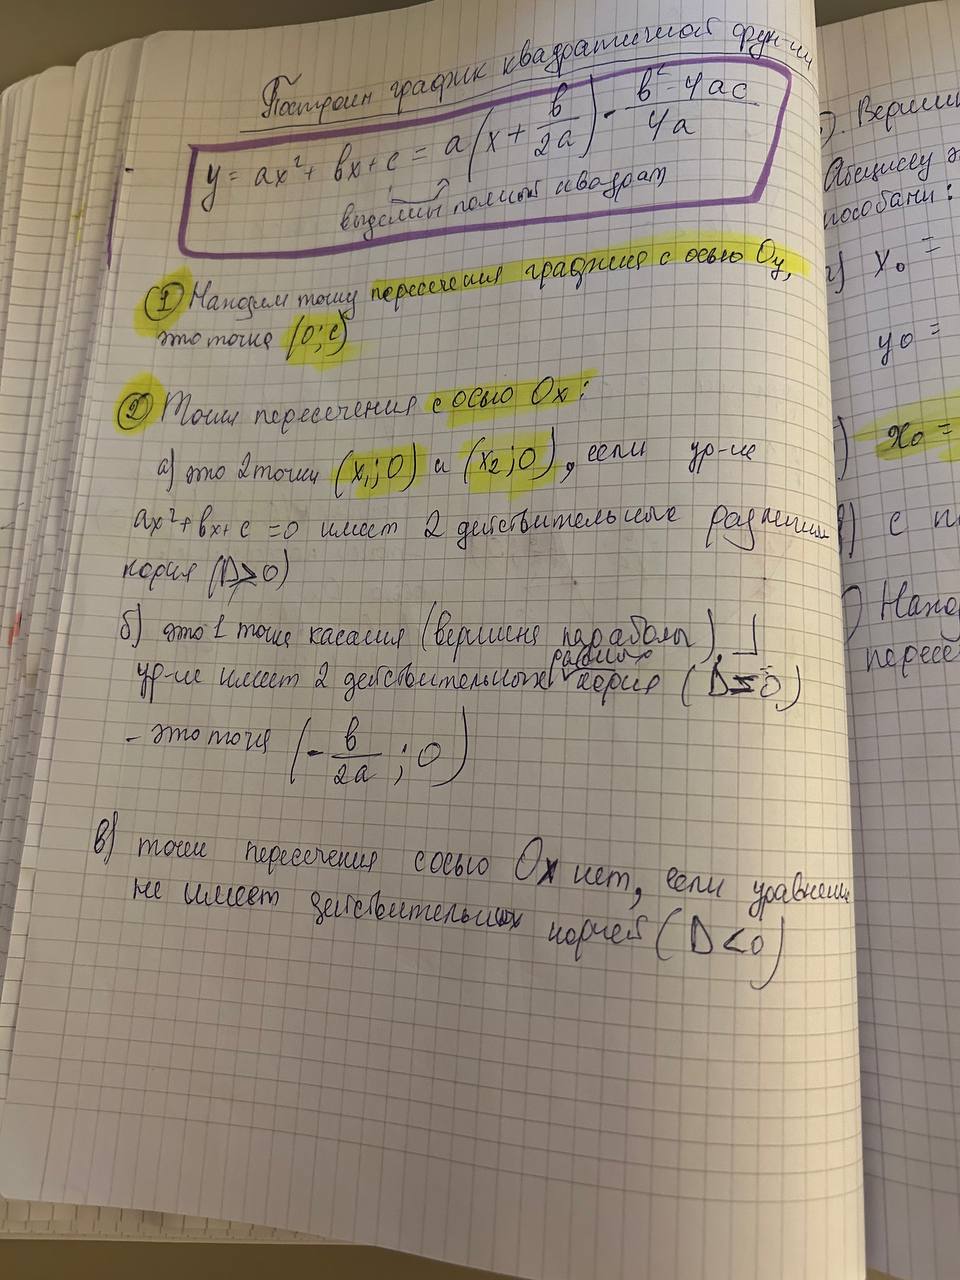 Построим график квадратичной фун-ии
y = ax² + bx + c = a(x + b/2a) - b² - 4ac/4a
выделили полный квадрат
1 Находим точку пересечения графика с осью Oy,
это точка (0; c)
2 Точки пересечения с осью Ox:
а) это 2 точки (x₁; 0) и (x₂; 0), если ур-ие
ax² + bx + c = 0 имеет 2 действительных различных
корня (D > 0)
б) это 1 точка касания (вершина параболы),
равных
ур-ие имеет 2 действительных корня (D = 0)
- это точка (- b/2a ; 0)
в) точек пересечения с осью Ox нет, если уравнение
не имеет действительных корней (D < 0)
). Вершин
Абсциссу
способами:
x₀ =
y₀ =
x₀ =
с п
Наход
пересе